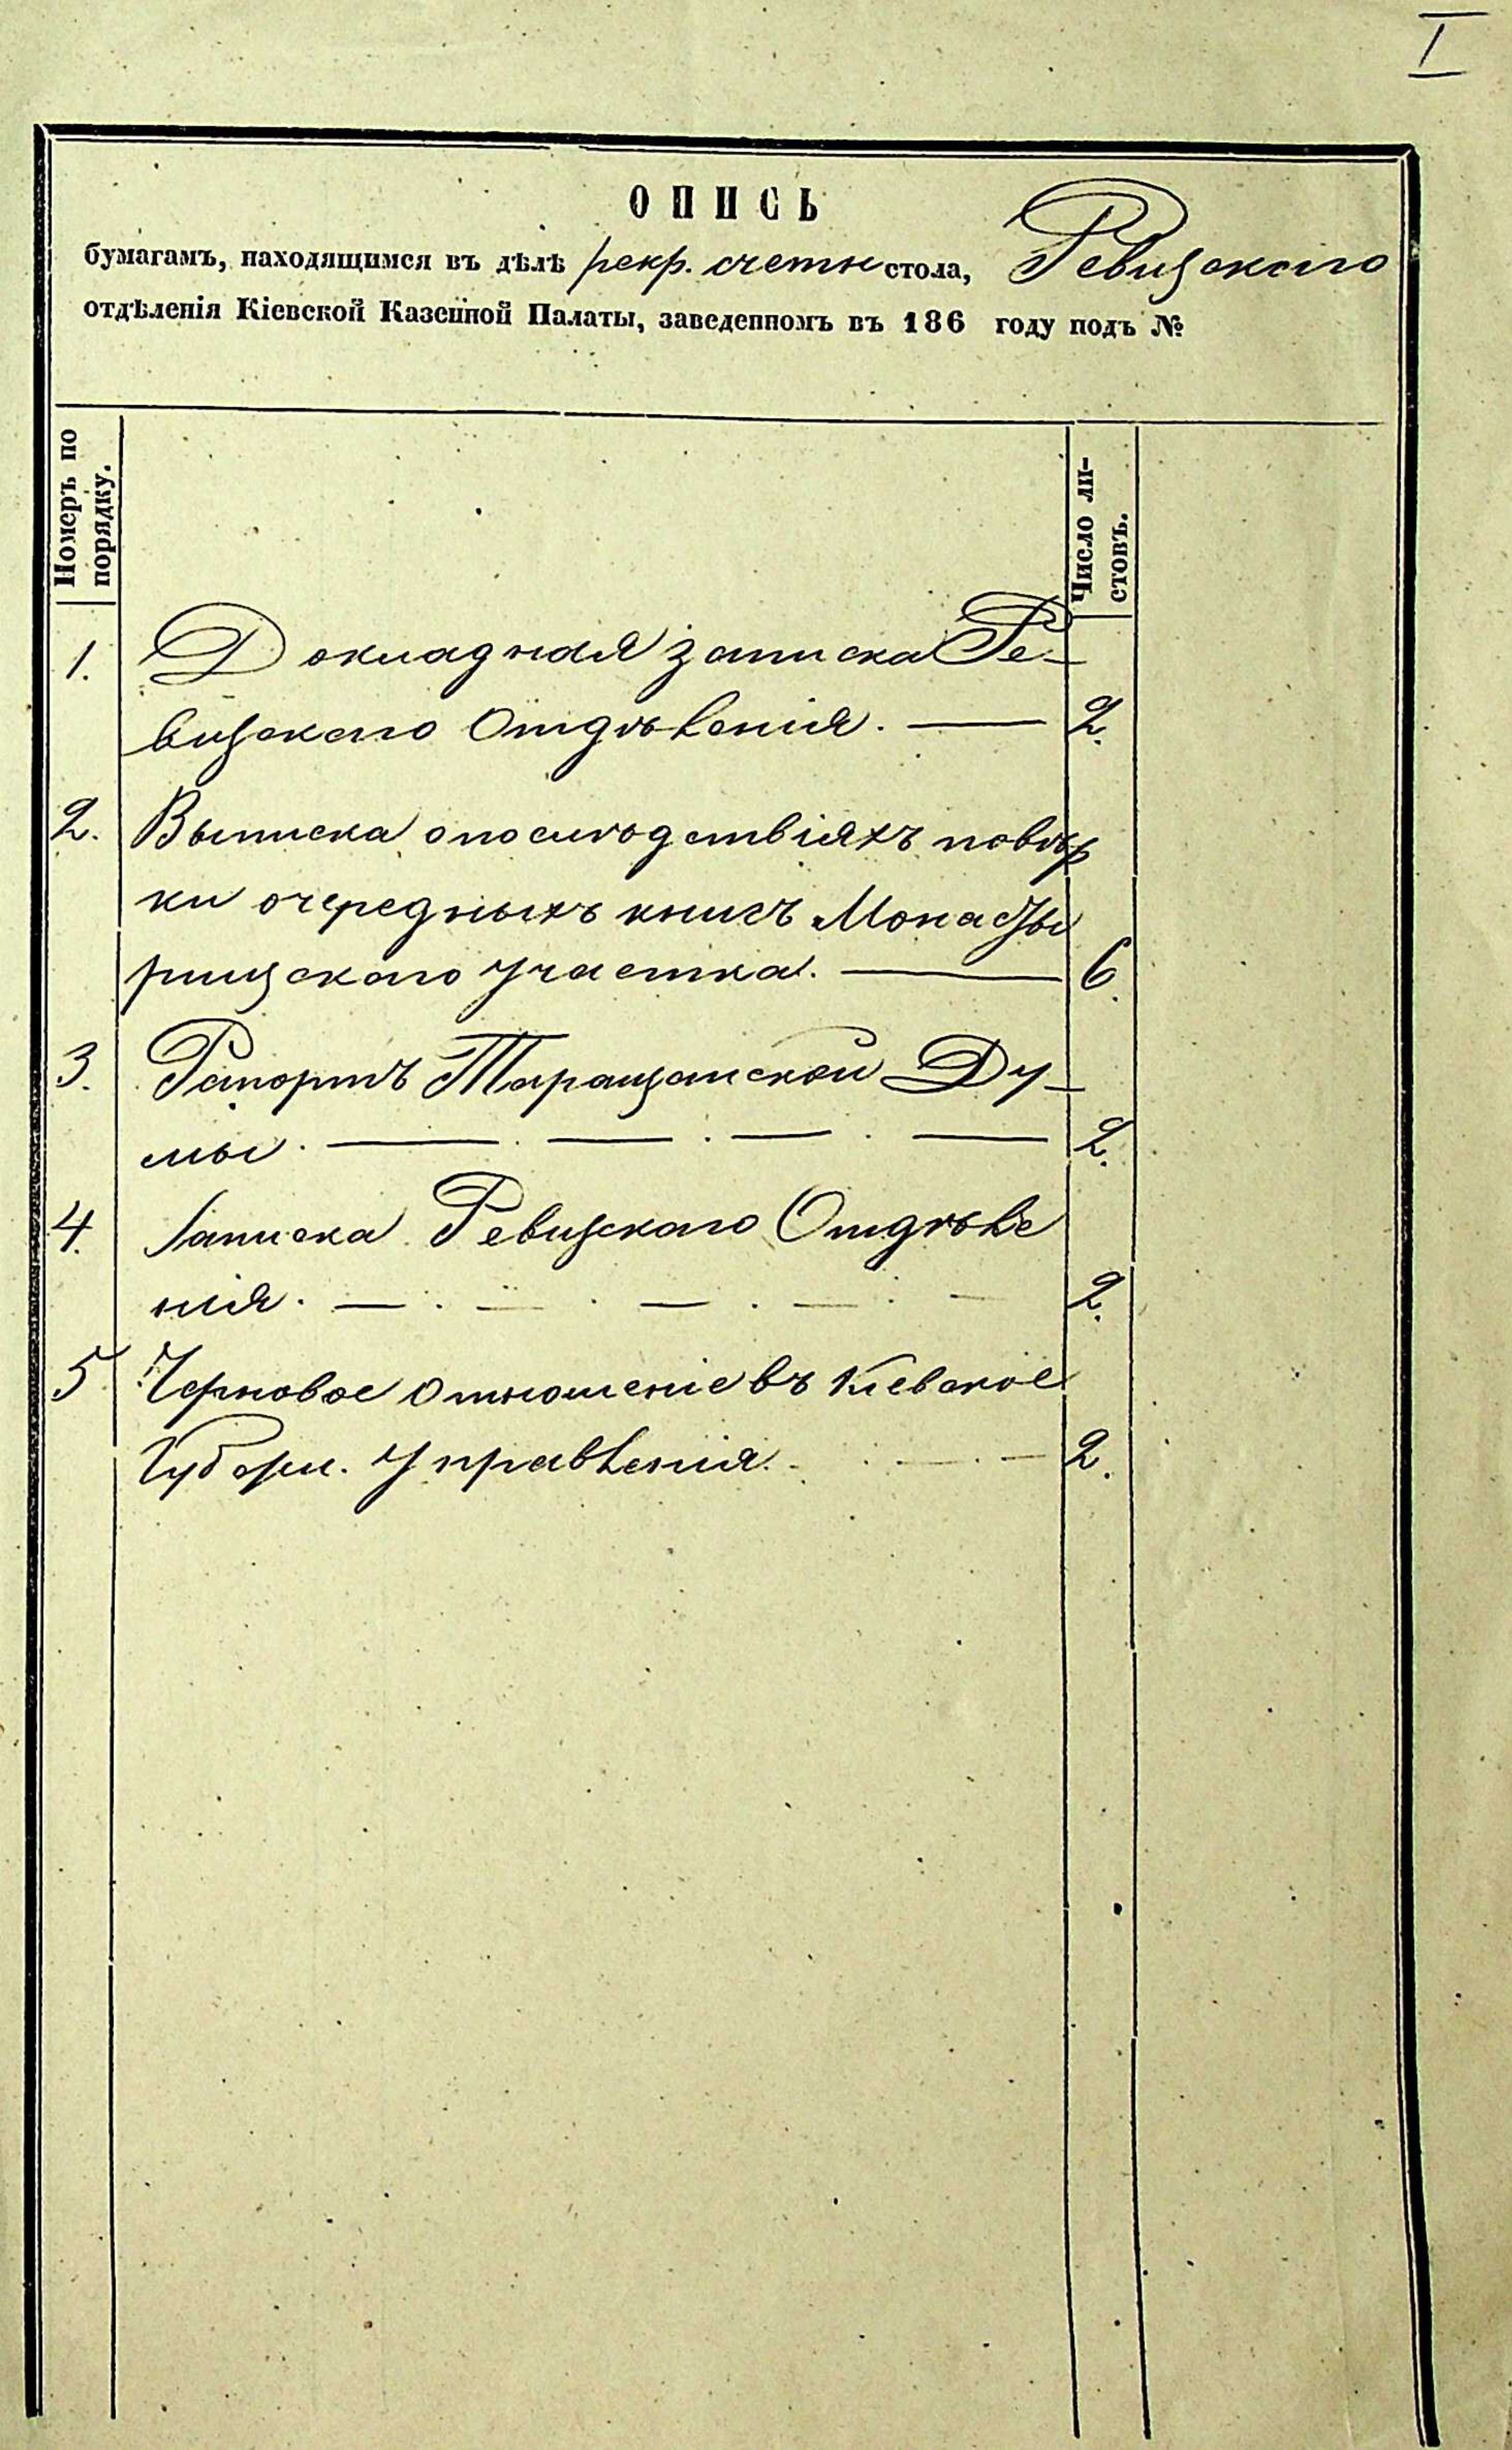 I
ОПИСЬ
бумагамъ, находящимся въ дѣлѣ рекр. счетн стола, Ревизскаго
отдѣленія Кіевской Казенной Палаты, заведенномъ въ 186 году подъ №
Номеръ по
порядку.
Число ли-
стовъ.
1. Докладная записка Ре-
визскаго Отдѣленія. — 2.
2. Выписка о послѣдствіяхъ повѣр
ки очередныхъ книгъ Монасты
рищскаго участка. — 6.
3. Рапортъ Таращанской Ду-
мы. — . — . — . — 2.
4. Записка Ревизскаго Отдѣле
нія. — . — . — . — . — 2.
5 Черновое отношеніе въ Кіевское
Губерн. Управленія. — 2.